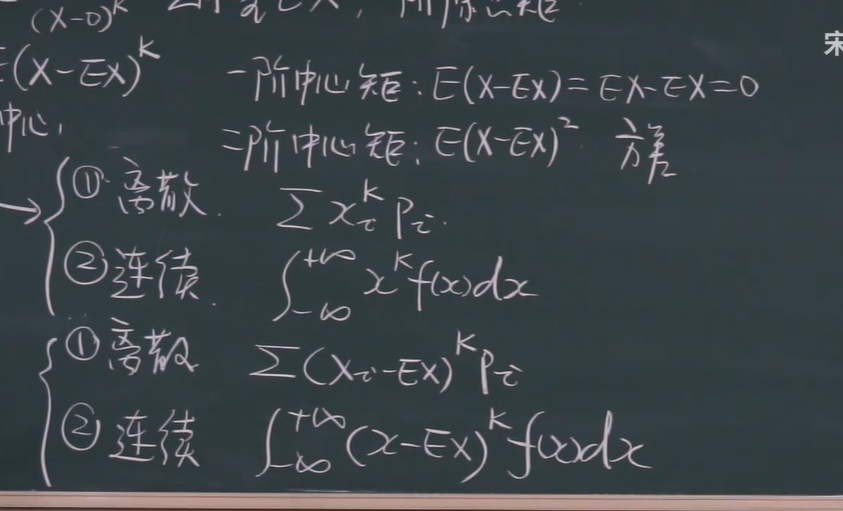 (X-0)^k
E(X-EX)^k 一阶中心矩: E(X-EX)=EX-EX=0
中心, 二阶中心矩: E(X-EX)^2 方差
→ ①离散. Σx_i^k p_i.
②连续. ∫_{-∞}^{+∞} x^k f(x)dx
①离散 Σ(x_i-EX)^k p_i
②连续 ∫_{-∞}^{+∞} (x-EX)^k f(x)dx
宋